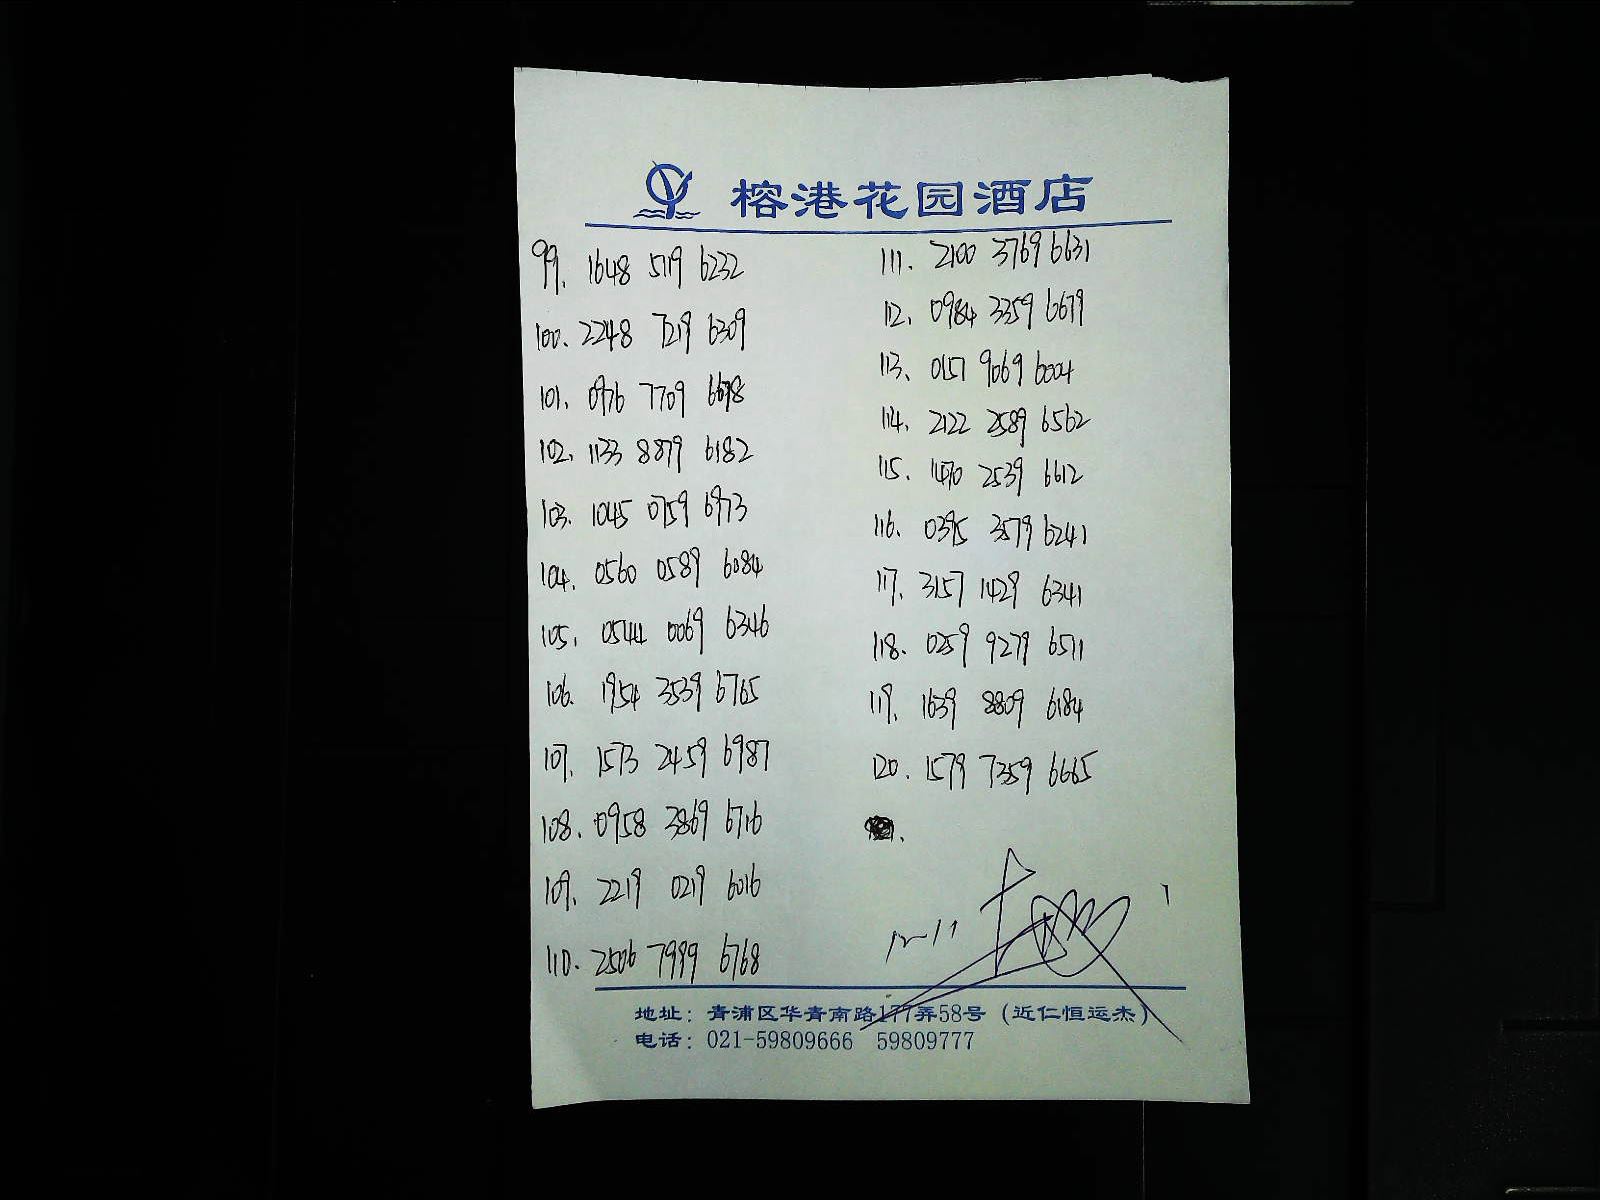 榕港花园酒店
99. 1648 5119 6232
100. 2248 7219 6309
101. 0976 7709 6698
102. 1133 8879 6182
103. 1045 0759 6973
104. 0560 0589 6084
105. 0544 0069 6346
106. 1954 3539 6765
107. 1573 2459 6987
108. 0958 3869 6716
109. 2219 0219 6016
110. 2506 7999 6768
111. 2100 3769 6631
112. 0984 3359 6679
113. 0157 9069 6004
114. 2122 2589 6562
115. 1470 2539 6612
116. 0395 3579 6241
117. 3157 1429 6341
118. 0259 9279 6511
119. 1639 8809 6184
120. 1579 7359 6665
12-11
地址：青浦区华青南路177弄58号（近仁恒运杰）
电话：021-59809666 59809777